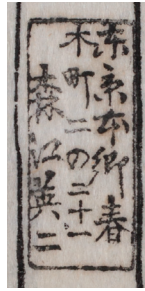 东京本郷春
木町二の二十一
森江英二